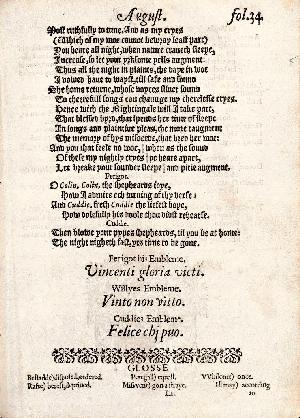 August. fol.34.
Most faithfully to tune. And as my cryes
(Which of my woe cannot bewray least part)
You heare all night, when nature craueth sleepe,
Increase, so let your yrksome yells augment.
Thus all the night in plaints, the daye in woe
I vowed haue to wayst, till safe and sound
She home returne, whose voyces siluer sound
To cheerefull songs can chaunge my cherelesse cryes.
Hence with the Nightingale will I take part,
That blessed byrd, that spends her time of sleepe
In songs and plaintiue pleas, the more taugment
The memory of hys misdeede, that bred her woe:
And you that feele no woe, | when as the sound
Of these my nightly cryes | ye heare apart,
Let breake your sounder sleepe | and pitie augment.
Perigot.
O Colin, Colin, the shepheards ioye,
How I admire ech turning of thy verse:
And Cuddie, fresh Cuddie the liefest boye,
How dolefully his doole thou didst rehearse.
Cuddie.
Then blowe your pypes shepheards, til you be at home:
The night nigheth fast, yts time to be gone.
Perigot his Embleme.
Vincenti gloria victi.
Willyes Embleme.
Vinto non vitto.
Cuddies Embleme.
Felice chi puo.
GLOSSE
Bestadde) disposed, ordered. Peregall) equall. VVhilome) once.
Rafte) bereft, depriued. Misvvent) gon a straye. Ill may) according